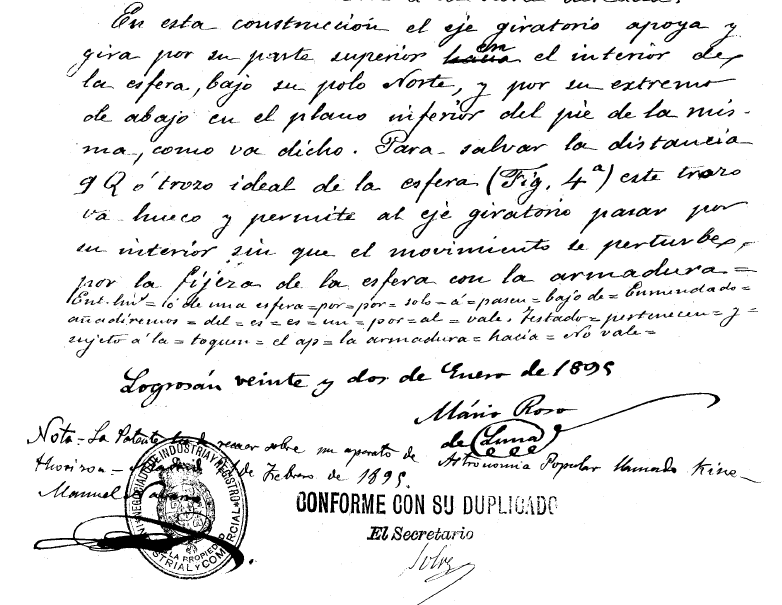 En esta construcción el eje giratorio apoya y
gira por su parte superior en el interior de
la esfera, bajo su polo Norte, y por su extremo
de abajo en el plano inferior del pie de la mis-
ma, como va dicho. Para salvar la distancia
q Q ó trozo ideal de la esfera (Fig. 4ª) este trozo
va hueco y permite al eje giratorio pasar por
su interior sin que el movimiento se perturbe,
por la fijeza de la esfera con la armadura =
Ent. lin. = ó de una esfera = por = por = solo = á = bajo de = Enmendado =
añadiremos = del = es = es = un = por = al = vale. Testado = pertenecen = y =
sujeto á la = toquen = el ap = la armadura = hacia = No vale =
Logrosán veinte y dos de Enero de 1895
Mário Roso
de Luna
Nota = La Patente ha de recaer sobre un aparato de Astronomia Popular llamado Kine-
Febrero de 1895.
Manuel
NEGOCIADO DE INDUSTRIA Y REGISTRO
DE LA PROPIEDAD INDUSTRIAL Y COMERCIAL
CONFORME CON SU DUPLICADO
El Secretario